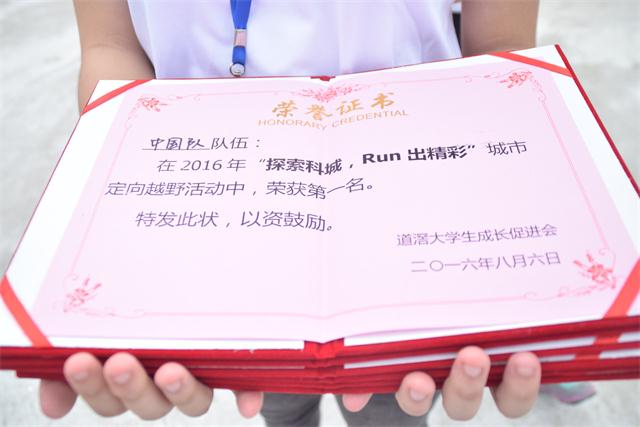 荣誉证书
HONORARY CREDENTIAL
中国队队伍：
在2016年“探索科城，Run出精彩”城市
定向越野活动中，荣获第一名。
特发此状，以资鼓励。
道滘大学生成长促进会
二〇一六年八月六日